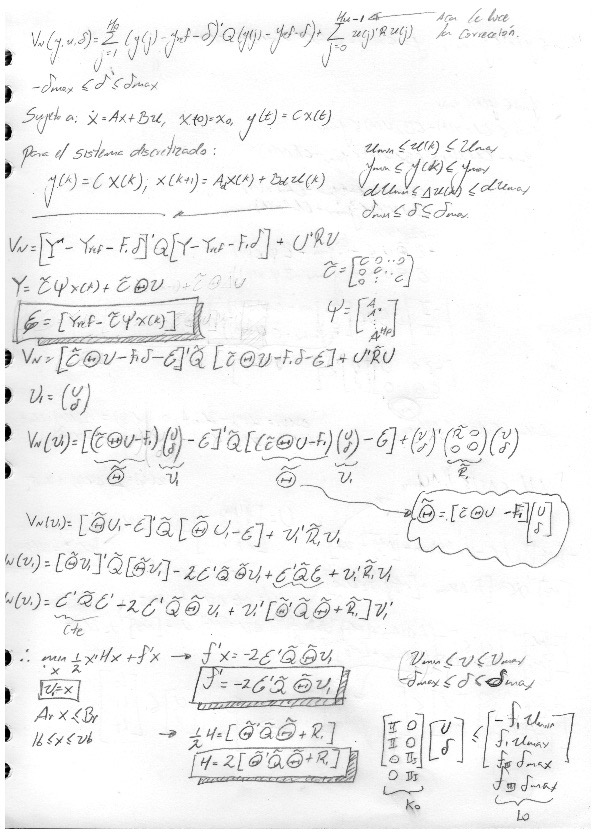 V_N(y,u,δ) = Σ_{j=1}^{Hp} (y(j) - yref - δ)' Q (y(j) - yref - δ) + Σ_{j=0}^{Hu-1} u(j)' R u(j)
la corrección.
-δmax ≤ δ ≤ δmax
Sujeto a: ẋ = Ax + Bu, x(0) = x₀, y(t) = Cx(t)
para el sistema discretizado:
y(k) = C x(k); x(k+1) = A_d x(k) + B_d u(k)
umin ≤ u(k) ≤ Umax
ymin ≤ y(k) ≤ ymax
dUmin ≤ Δu(k) ≤ dUmax
δmin ≤ δ ≤ δmax
V_N = [Y - Yref - F₁δ]' Q [Y - Yref - F₁δ] + U'RU
Y = C̃Ψx(k) + C̃ΘU
C̃ = [C 0 ·· 0; 0 C ·· 0; 0 : C]
Ɛ = [Yref - C̃Ψx(k)]
Ψ = [A; A²; ⋮; A^{Hp}]
V_N = [C̃ΘU - F₁δ - Ɛ]' Q̃ [C̃ΘU - F₁δ - Ɛ] + U'R̃U
U₁ = (U; δ)
V_N(U₁) = [(C̃ΘU - F₁)(U; δ) - Ɛ]' Q̃ [(C̃ΘU - F₁)(U; δ) - Ɛ] + (U; δ)' (R̃ 0; 0 0) (U; δ)
Θ̃ U₁ Θ̃ U₁ R̃₁
Θ̃ = [C̃ΘU - F₁] [U; δ]
V_N(U₁) = [Θ̃U₁ - Ɛ]' Q̃ [Θ̃U₁ - Ɛ] + U₁'R̃₁U₁
V_N(U₁) = [Θ̃U₁]' Q̃ [Θ̃U₁] - 2Ɛ'Q̃Θ̃U₁ + Ɛ'Q̃Ɛ + U₁'R̃₁U₁
V_N(U₁) = Ɛ'Q̃Ɛ - 2Ɛ'Q̃Θ̃U₁ + U₁' [Θ̃'Q̃Θ̃ + R̃₁] U₁'
Cte
∴ min_x ½ x'Hx + f'x → f'x = -2Ɛ'Q̃Θ̃U₁
U₁ = x
f' = -2Ɛ'Q̃Θ̃U₁
Ar x ≤ Br
lb ≤ x ≤ ub → ½H = [Θ̃'Q̃Θ̃ + R₁]
H = 2[Θ̃'Q̃Θ̃ + R₁]
Umin ≤ U ≤ Umax
-δmax ≤ δ ≤ δmax
[II 0; II 0; 0 II; 0 II] [U; δ] ≤ [-f₁ Umin; f₁ Umax; δmax; δmax]
K₀ L₀